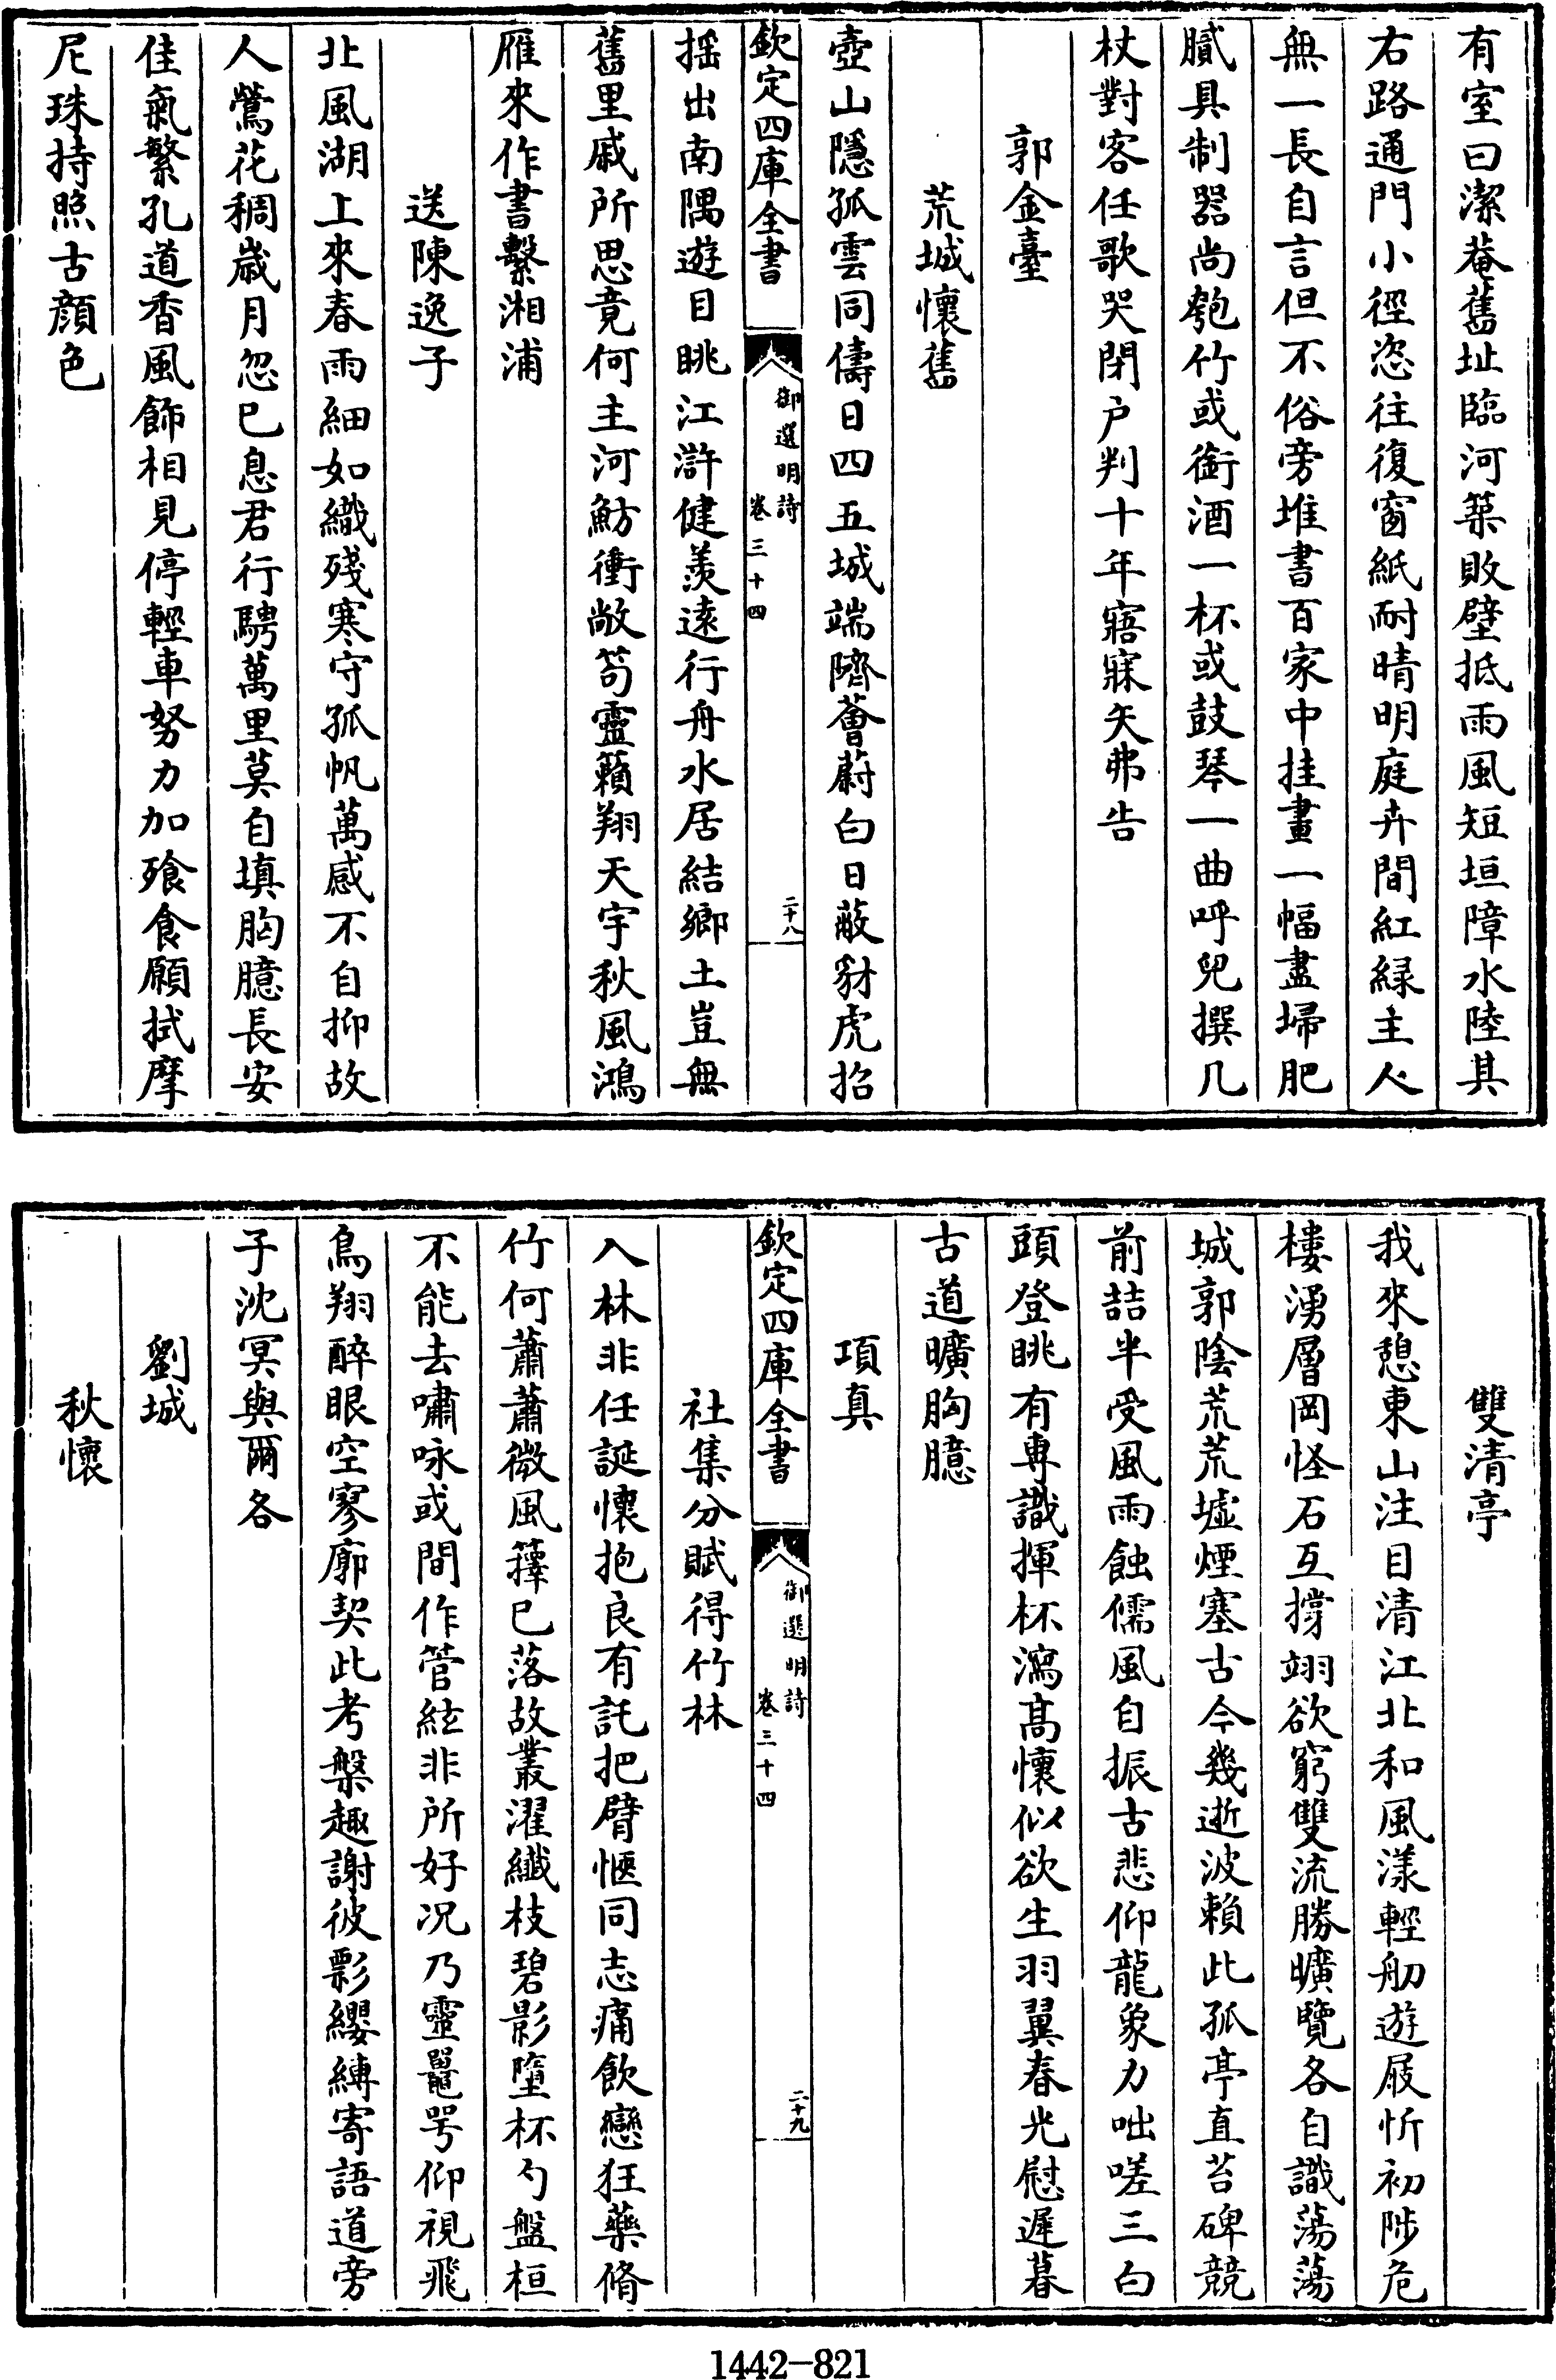 有室曰潔菴舊址臨河築敗壁抵雨風短垣障水陸其
右路通門小徑恣往復窗紙耐晴明庭卉間紅緑主人
無一長自言但不俗旁堆書百家中挂畫一幅盡埽肥
膩具制器尚匏竹或銜酒一杯或鼓琴一曲呼兒撰几
杖對客任歌哭閉户判十年寤寐矢弗告
郭金臺
荒城懷舊
壺山隱孤雲同儔日四五城端隮薈蔚白日蔽豺虎招
欽定四庫全書
御選明詩
卷三十四
二十八
揺出南隅遊目眺江滸健羨遠行舟水居結鄉土豈無
舊里戚所思竟何主河魴衝敝笱靈籟翔天宇秋風鴻
雁來作書繫湘浦
送陳逸子
北風湖上來春雨細如織殘寒守孤帆萬感不自抑故
人鶯花稠歲月忽已息君行騁萬里莫自填胸臆長安
佳氣繁孔道香風飾相見停輕車努力加飱食願拭摩
尼珠持照古顔色
雙清亭
我來憩東山注目清江北和風漾輕舠遊屐忻初陟危
樓湧層岡怪石互撐翊欲窮雙流勝曠覽各自識蕩蕩
城郭陰荒荒墟煙塞古今幾逝波賴此孤亭直苔碑競
前喆半受風雨蝕儒風自振古悲仰龍象力咄嗟三白
頭登眺有專識揮杯瀉髙懷似欲生羽翼春光慰遲暮
古道曠胸臆
項真
欽定四庫全書
御選明詩
卷三十四
二十九
社集分賦得竹林
入林非任誕懷抱良有託把臂愜同志痛飲戀狂藥脩
竹何蕭蕭微風籜已落故叢濯纖枝碧影墮杯勺盤桓
不能去嘯咏或間作管絃非所好况乃靈鼉咢仰視飛
鳥翔醉眼空寥廓契此考槃趣謝彼影纓縛寄語道旁
子沈冥與爾各
劉城
秋懷
1442-821